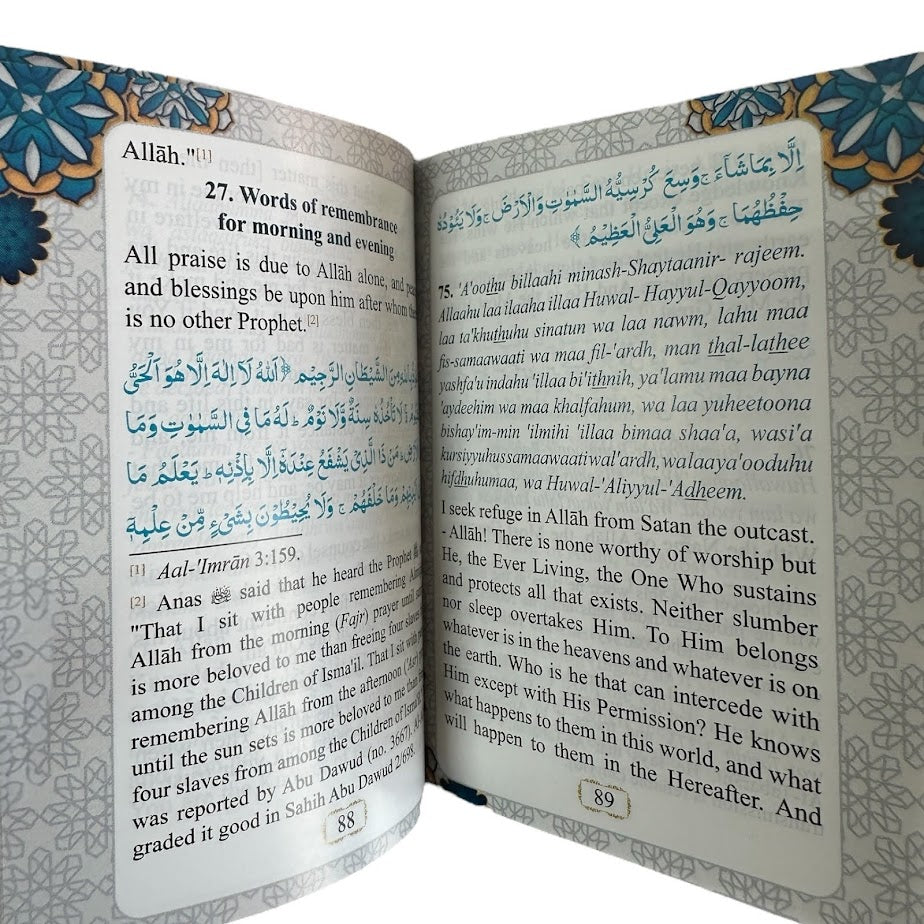 Allāh."[1]
27. Words of remembrance
for morning and evening
All praise is due to Allāh alone, and
and blessings be upon him after whom
is no other Prophet.[2]
مِنَ الشَّيْطَانِ الرَّجِيْمِ ﴿اَللّٰهُ لَآ اِلٰهَ اِلَّا هُوَ اَلْحَىُّ
لَا تَاْخُذُهٗ سِنَةٌ وَّلَا نَوْمٌ ؕ لَهٗ مَا فِى السَّمٰوٰتِ وَمَا
مَنْ ذَا الَّذِىْ يَشْفَعُ عِنْدَهٗٓ اِلَّا بِاِذْنِهٖ ؕ يَعْلَمُ مَا
وَمَا خَلْفَهُمْ ۚ وَلَا يُحِيْطُوْنَ بِشَىْءٍ مِّنْ عِلْمِهٖٓ
[1] Aal-'Imrān 3:159.
[2] Anas said that he heard the Prophet
"That I sit with people remembering
Allāh from the morning (Fajr) prayer until
is more beloved to me than freeing four slaves
among the Children of Isma'il. That I sit with
remembering Allāh from the afternoon ('Asr)
until the sun sets is more beloved to me than
four slaves from among the Children of
was reported by Abu Dawud (no. 3667).
graded it good in Sahih Abu Dawud 2/698.
88
اِلَّا بِمَا شَآءَ ۚ وَسِعَ كُرْسِيُّهُ السَّمٰوٰتِ وَالْاَرْضَ ۚ وَلَا يَئُوْدُهٗ
حِفْظُهُمَا ۚ وَهُوَ الْعَلِىُّ الْعَظِيْمُ ﴾
75. 'A'oothu billaahi minash-Shaytaanir- rajeem.
Allaahu laa ilaaha illaa Huwal- Hayyul-Qayyoom,
laa ta'khuthuhu sinatun wa laa nawm, lahu maa
fis-samaawaati wa maa fil-'ardh, man thal-lathee
yashfa'u indahu 'illaa bi'ithnih, ya'lamu maa bayna
'aydeehim wa maa khalfahum, wa laa yuheetoona
bishay'im-min 'ilmihi 'illaa bimaa shaa'a, wasi'a
kursiyyuhussamaawaatiwal'ardh, walaaya'ooduhu
hifdhuhumaa, wa Huwal-'Aliyyul-'Adheem.
I seek refuge in Allāh from Satan the outcast.
- Allāh! There is none worthy of worship but
He, the Ever Living, the One Who sustains
and protects all that exists. Neither slumber
nor sleep overtakes Him. To Him belongs
whatever is in the heavens and whatever is on
the earth. Who is he that can intercede with
Him except with His Permission? He knows
what happens to them in this world, and what
will happen to them in the Hereafter. And
89